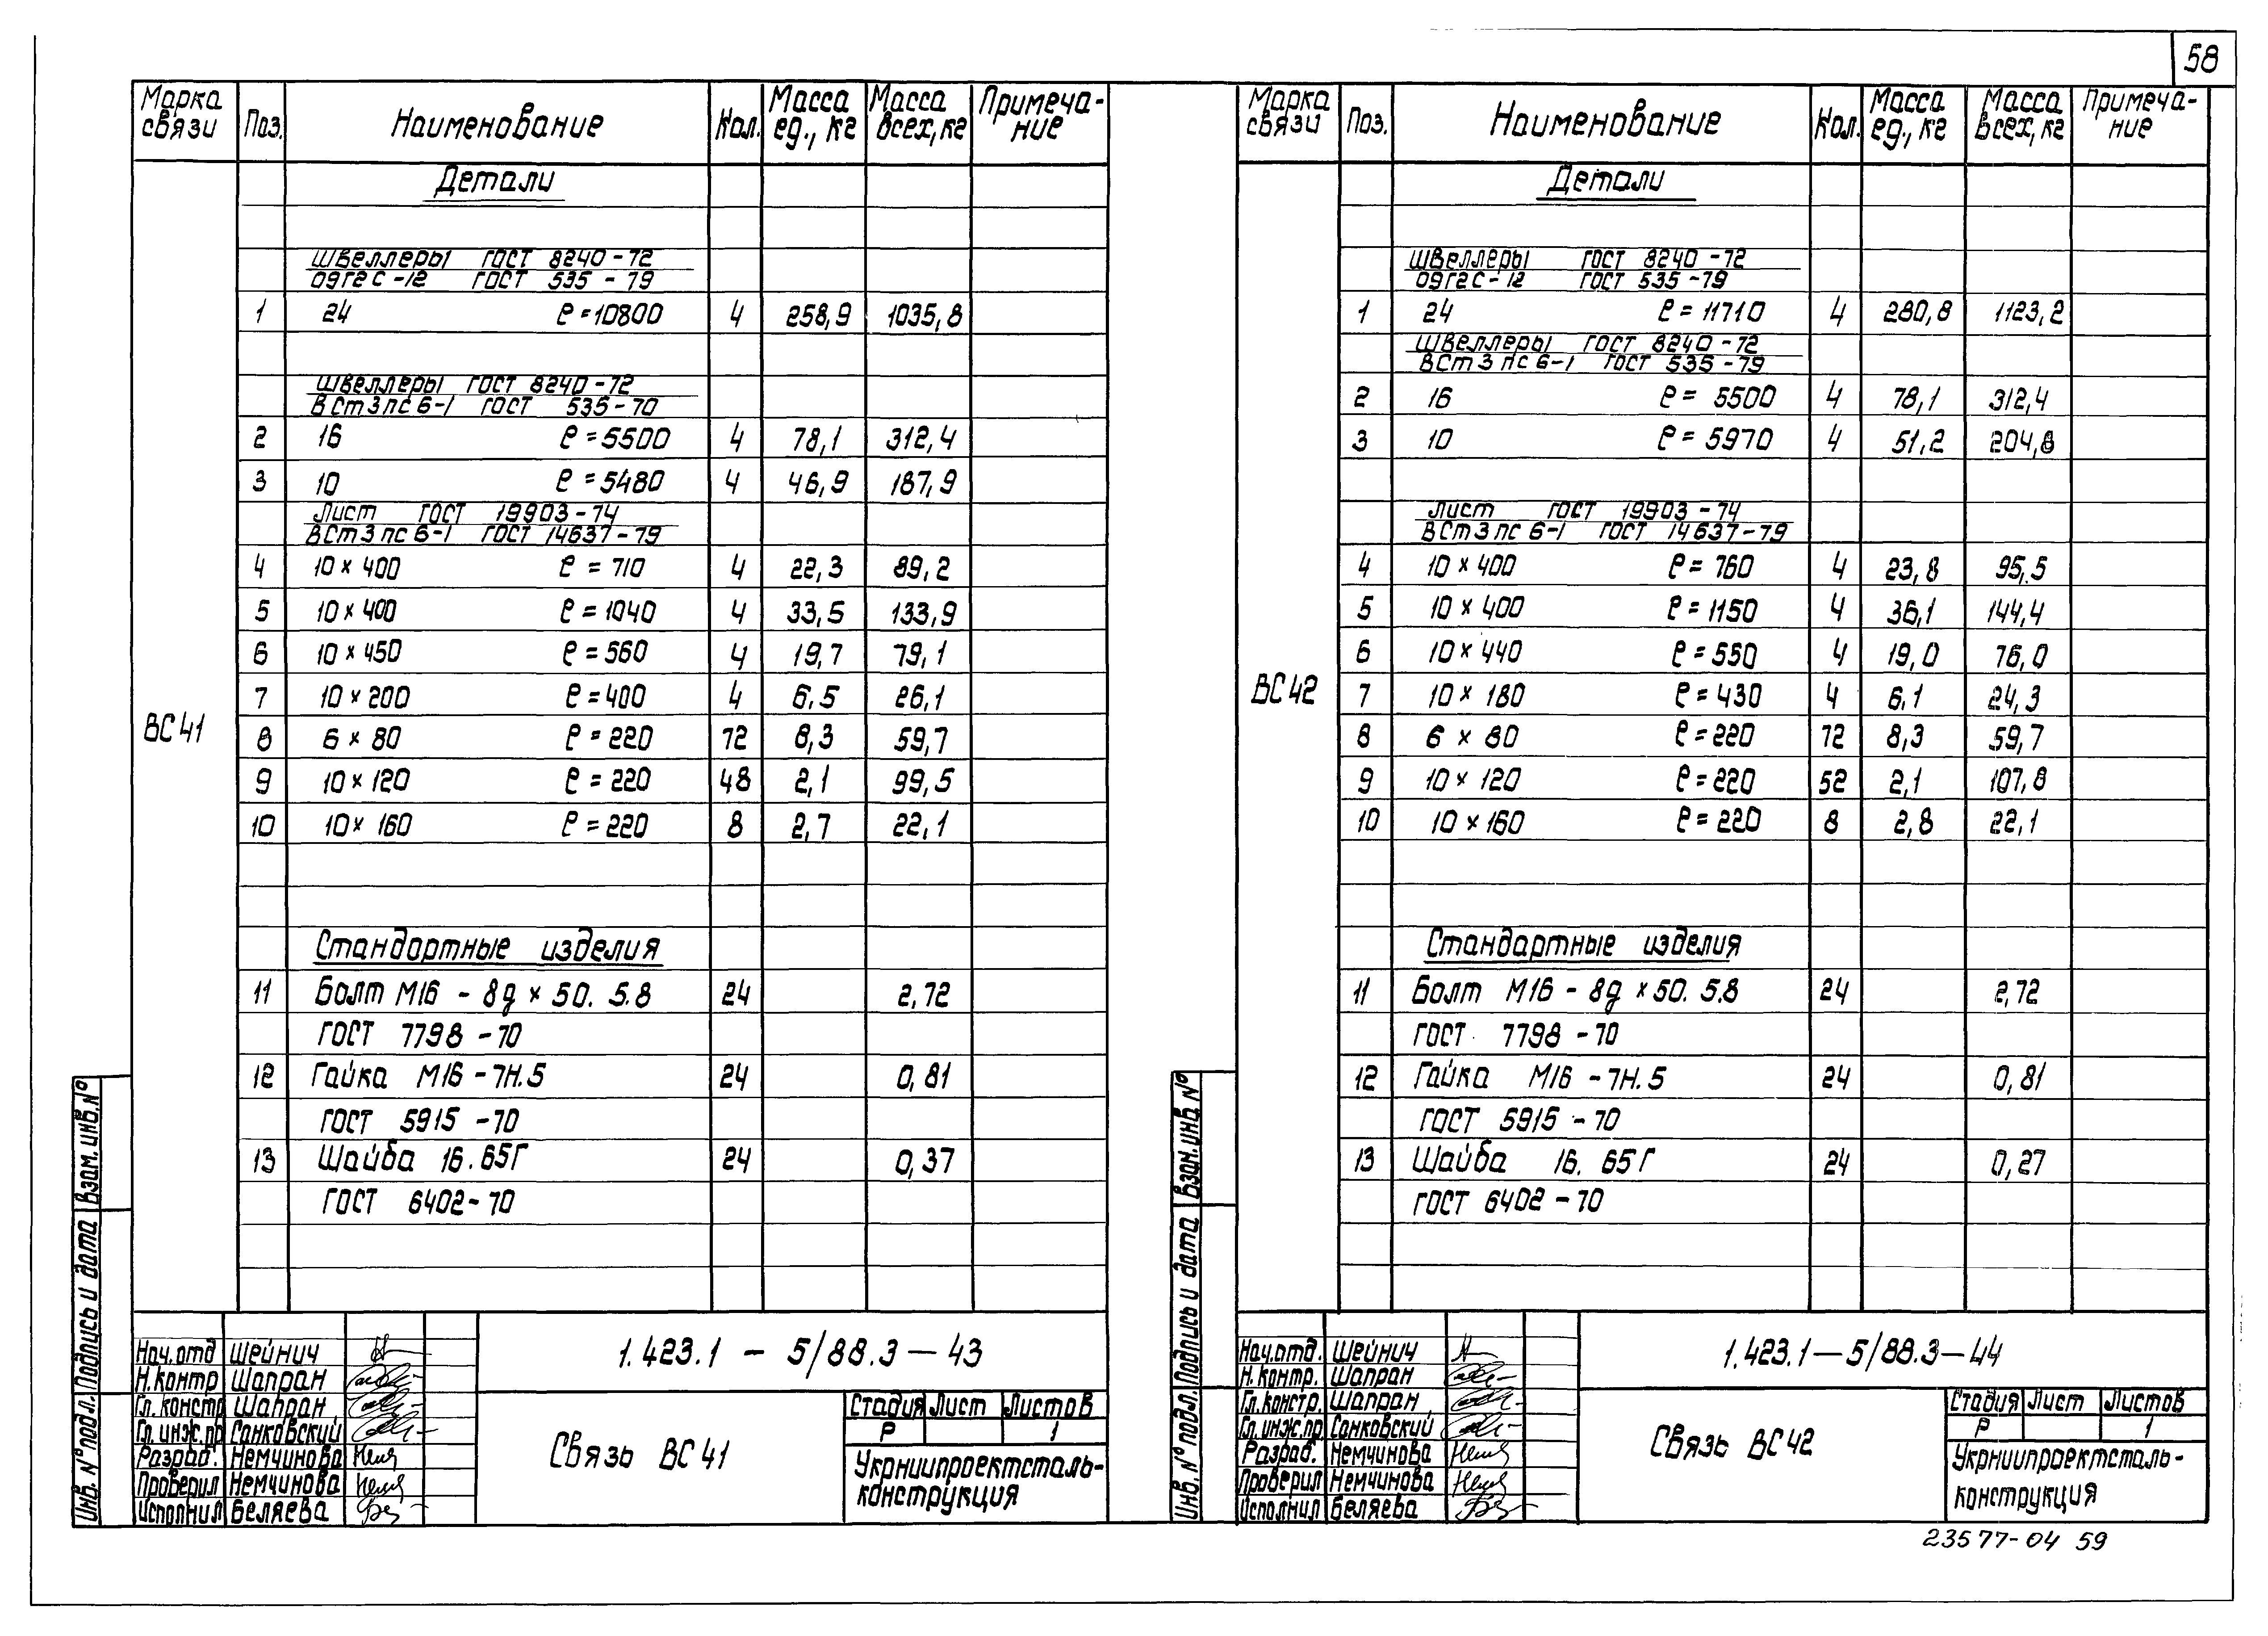 58
Марка связи | Поз. | Наименование | Кол. | Масса ед., кг | Масса всех, кг | Примечание
Детали
Швеллеры ГОСТ 8240-72
09Г2С-12 ГОСТ 535-79
1 24 ℓ=10800 4 258,9 1035,8
Швеллеры ГОСТ 8240-72
ВСт3пс6-1 ГОСТ 535-70
2 16 ℓ=5500 4 78,1 312,4
3 10 ℓ=5480 4 46,9 187,9
Лист ГОСТ 19903-74
ВСт3пс6-1 ГОСТ 14637-79
4 10×400 ℓ=710 4 22,3 89,2
5 10×400 ℓ=1040 4 33,5 133,9
6 10×450 ℓ=560 4 19,7 79,1
7 10×200 ℓ=400 4 6,5 26,1
ВС41
8 6×80 ℓ=220 72 8,3 59,7
9 10×120 ℓ=220 48 2,1 99,5
10 10×160 ℓ=220 8 2,7 22,1
Стандартные изделия
11 Болт М16-8g×50.5.8 24 2,72
ГОСТ 7798-70
12 Гайка М16-7Н.5 24 0,81
ГОСТ 5915-70
13 Шайба 16.65Г 24 0,37
ГОСТ 6402-70
Взам.инв.N°
Подпись и дата
Инв.N°подл.
1.423.1-5/88.3-43
Нач.отд Шейнич
Н.контр Шапран
Гл.констр Шапран
Гл.инж.пр Санковский
Разраб. Немчинова
Проверил Немчинова
Исполнил Беляева
Связь ВС41
Стадия Лист Листов
Р 1
Укрниипроектсталь-
конструкция
Марка связи | Поз. | Наименование | Кол. | Масса ед., кг | Масса всех, кг | Примечание
Детали
Швеллеры ГОСТ 8240-72
09Г2С-12 ГОСТ 535-79
1 24 ℓ=11710 4 280,8 1123,2
Швеллеры ГОСТ 8240-72
ВСт3пс6-1 ГОСТ 535-79
2 16 ℓ=5500 4 78,1 312,4
3 10 ℓ=5970 4 51,2 204,8
Лист ГОСТ 19903-74
ВСт3пс6-1 ГОСТ 14637-79
4 10×400 ℓ=760 4 23,8 95,5
5 10×400 ℓ=1150 4 36,1 144,4
6 10×440 ℓ=550 4 19,0 76,0
ВС42
7 10×180 ℓ=430 4 6,1 24,3
8 6×80 ℓ=220 72 8,3 59,7
9 10×120 ℓ=220 52 2,1 107,8
10 10×160 ℓ=220 8 2,8 22,1
Стандартные изделия
11 Болт М16-8g×50.5.8 24 2,72
ГОСТ 7798-70
12 Гайка М16-7Н.5 24 0,81
ГОСТ 5915-70
13 Шайба 16.65Г 24 0,27
ГОСТ 6402-70
Взам.инв.N°
Подпись и дата
Инв.N°подл.
1.423.1-5/88.3-44
Нач.отд. Шейнич
Н.контр. Шапран
Гл.констр. Шапран
Гл.инж.пр Санковский
Разраб. Немчинова
Проверил Немчинова
Исполнил Беляева
Связь ВС42
Стадия Лист Листов
Р 1
Укрниипроектсталь-
конструкция
23577-04 59